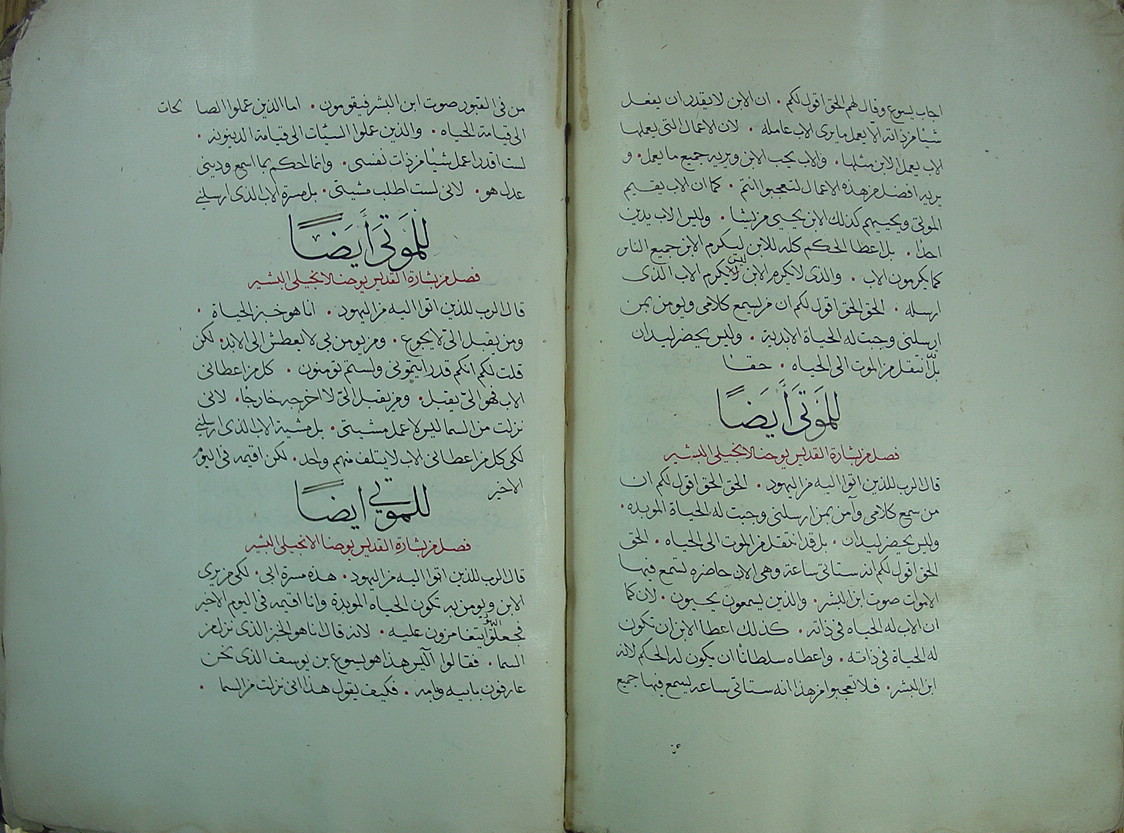 اجاب يسوع وقال لهم الحق اقول لكم • ان الابن لا يقدر ان يفعل
شيا من ذاته الا يعمل ما يرى الاب عامله • لان الاعمال التى يعملها
الاب يعمل الابن مثلها • والاب يحب الابن ويريه جميع ما يعمل • و
يريه افضل من هذه الاعمال لتعجبوا انتم • كما ان الاب يقيم
الموتى ويحييهم كذلك الابن يحيى من يشا • وليس الاب يدين
احدا • بل اعطا الحكم كله للابن ليكرم الابن جميع الناس
كما يكرمون الاب • والذى لا يكرم الابن ليس يكرم الاب الذى
ارسله • الحق الحق اقول لكم ان من يسمع كلامى ويومن بمن
ارسلنى وجبت له الحياة الابدية • وليس يحضر ليدان
بل انتقل من الموت الى الحياه • حقا
للموتى أيضًا
فصل من بشارة القديس يوحنا الانجيلى البشير
قال الرب للذين اتوا اليه من اليهود • الحق الحق اقول لكم ان
من سمع كلامى وآمن بمن ارسلنى وجبت له الحياة الموبده •
وليس يحضر ليدان • بل قد انتقل من الموت الى الحياه • الحق
الحق اقول لكم انه ستاتى ساعة وهى الان حاضره يسمع فيها
الاموات صوت ابن البشر • والذين يسمعون يحيون • لان كما
ان الاب له الحياه فى ذاته • كذلك اعطا الابن ان تكون
له الحياة فى ذاته • واعطاه سلطانا ان يكون له الحكم لانه
ابن البشر • فلا تعجبوا من هذا انه ستاتى ساعه يسمع فيها جميع
من فى القبور صوت ابن البشر فيقومون • اما الذين عملوا الصا لحات
الى قيامة الحياه • والذين عملوا السيئات الى قيامة الدينونه •
لست اقدر اعمل شيا من ذات نفسى • وانما احكم بما اسمع ودينى
عدل هو • لانى لست اطلب مشيتى • بل مسرة الاب الذى ارسلنى
للموتى أيضًا
فصل من بشارة القديس يوحنا الانجيلى البشير
قال الرب للذين اتوا اليه من اليهود • انا هو خبز الحياة •
ومن يقبل الى لا يجوع • ومن يومن بى لا يعطش الى الابد • لكن
قلت لكم انكم قد رايتمونى ولستم تومنون • كل من اعطانى
الاب فهو الىّ يقبل • ومن يقبل الىّ لا اخرجه خارجًا • لانى
نزلت من السما ليس لاعمل مشيتى • بل مشية الاب الذى ارسلنى
لكى كل من اعطانى الاب لا يتلف منهم واحد • لكن اقيمه فى اليوم
الاخير
للموتى ايضًا
فصل من بشارة القديس يوحنا الانجيلى البشير
قال الرب للذين اتوا اليه من اليهود • هذه مسرة ابى • لكى من يرى
الابن ويومن به تكون الحياه الموبدة وانا اقيمه فى اليوم الاخير
فجعلوا اليهود يتغامزون عليه • لانه قال انا هو الخبز الذى نزل من
السما • فقالوا اليس هذا هو يسوع بن يوسف الذى نحن
عارفون بابيه وامه • فكيف يقول هذا انى نزلت من السما •